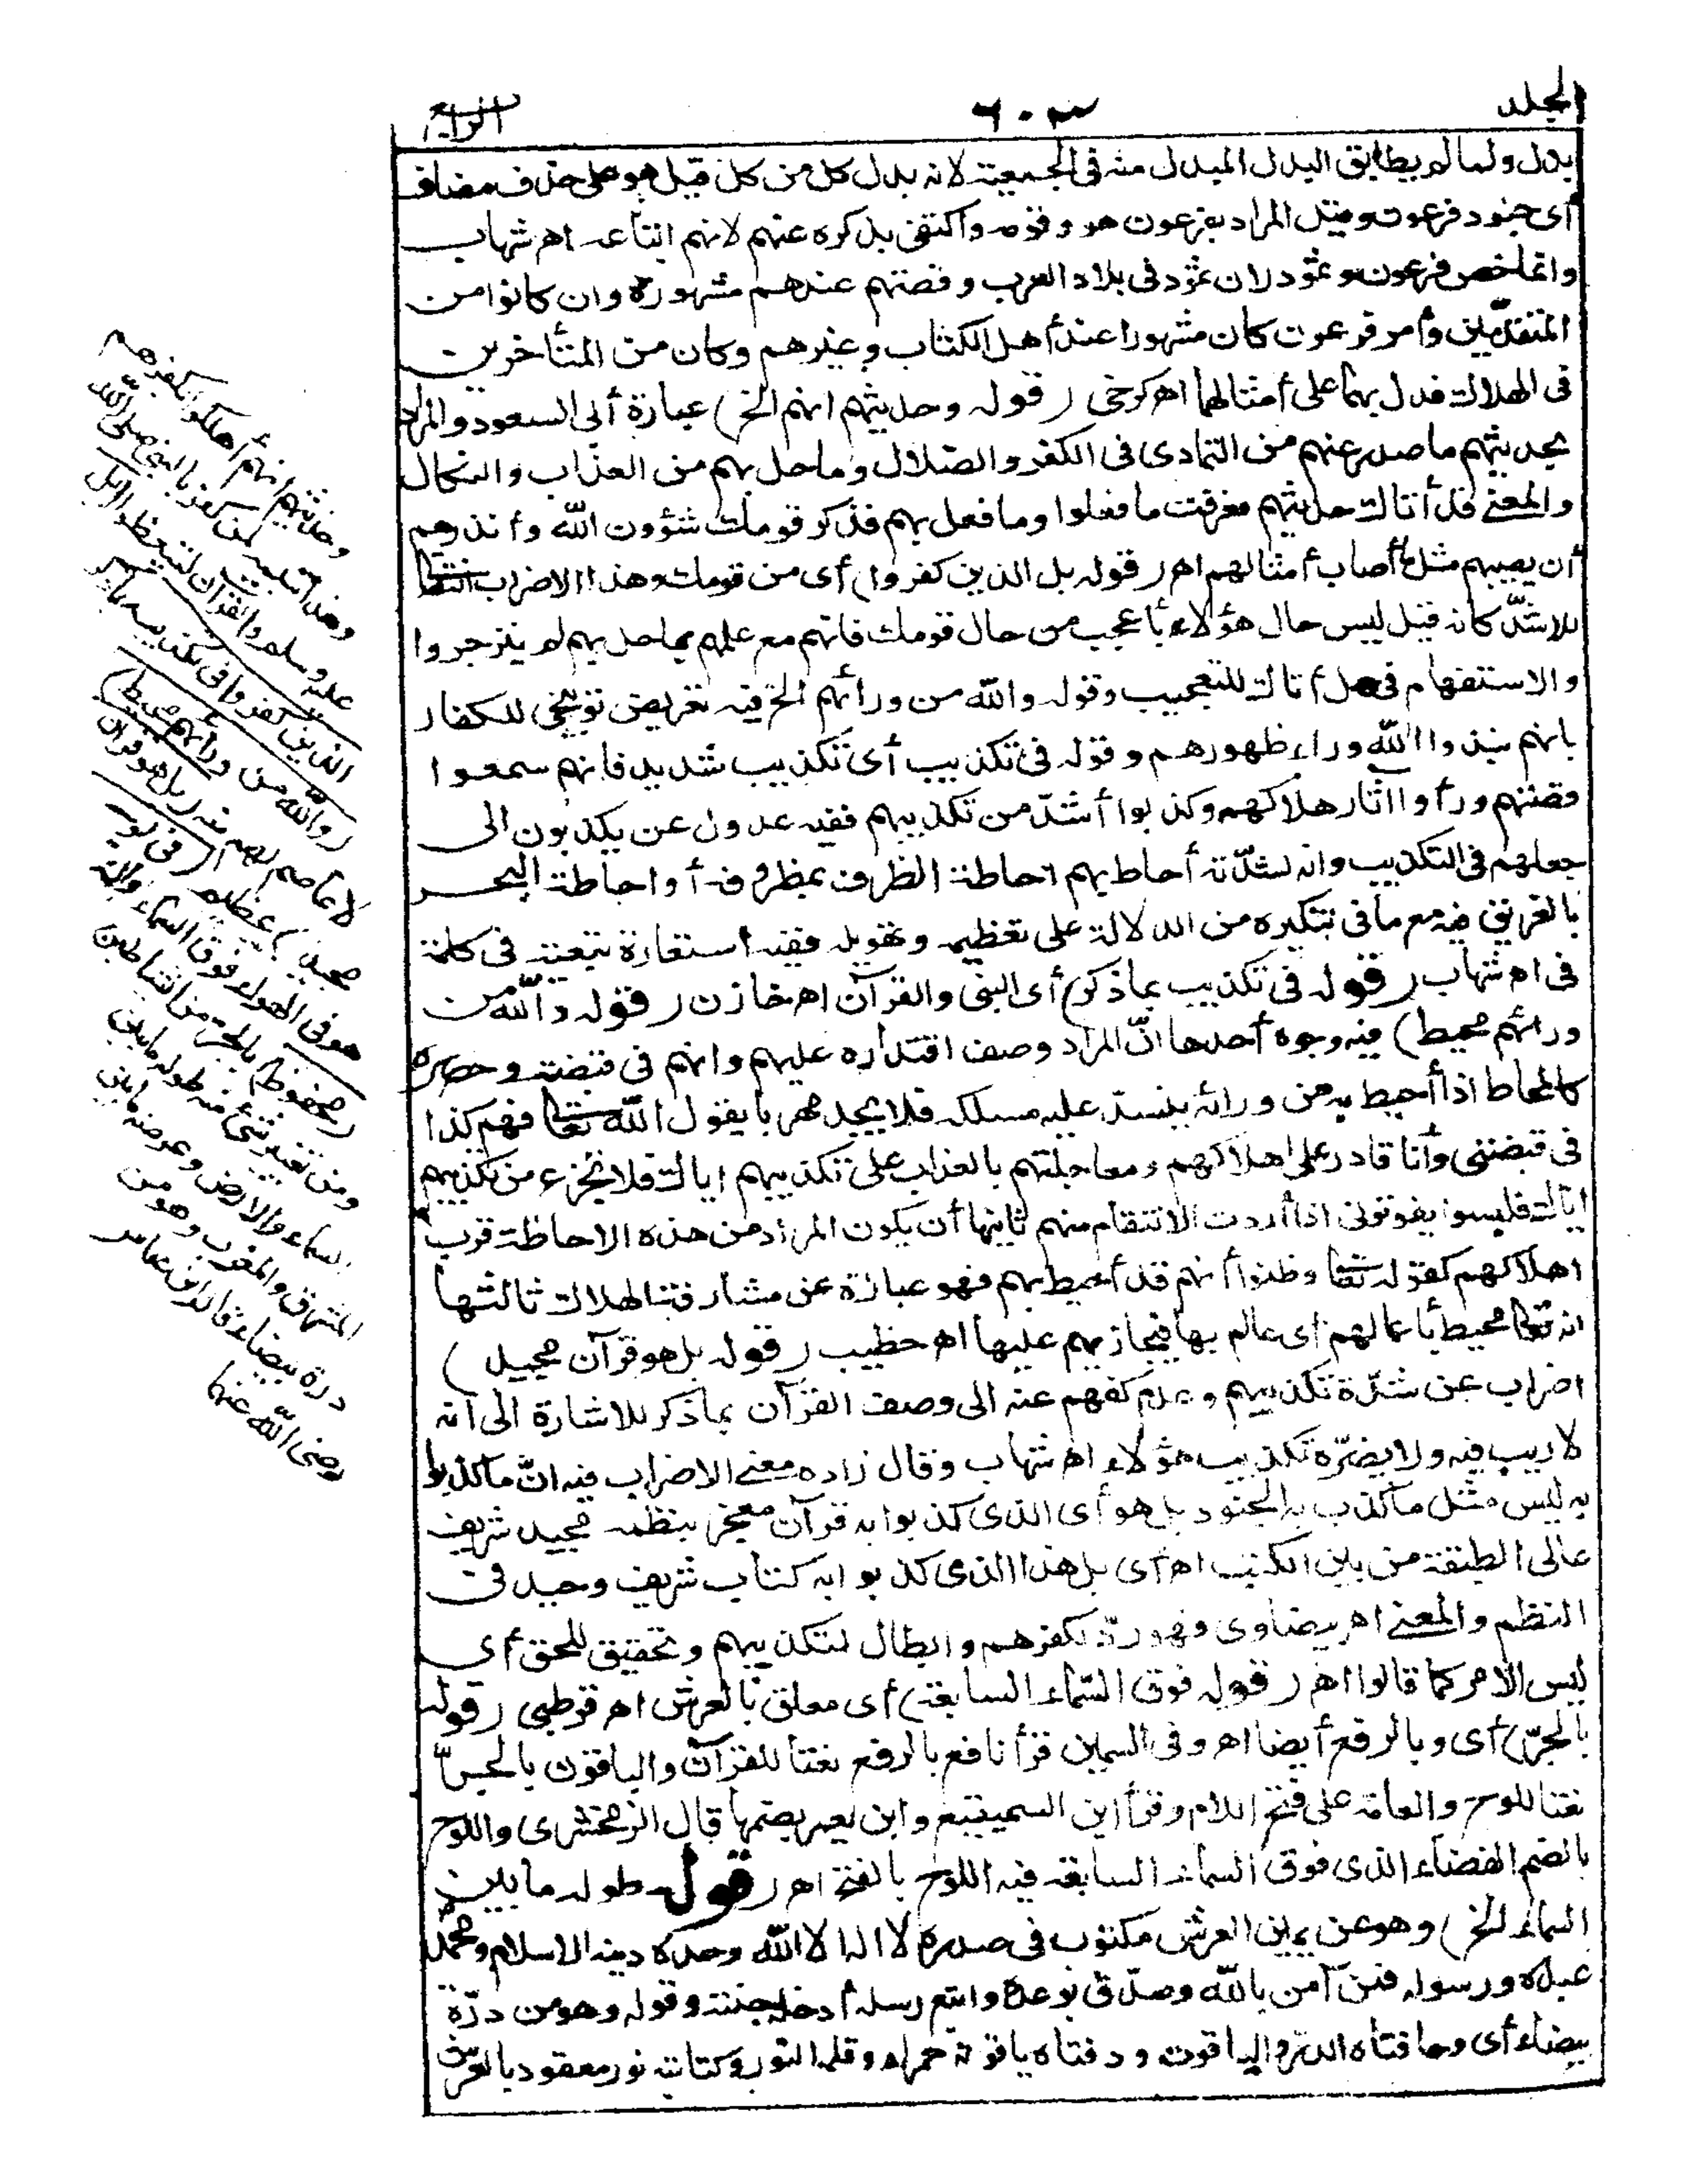 الجلد ٦٠٣ الرابع
بدل ولما لم يطابق البدل المبدل منه فى الجمعية لانه بدل كل من كل قيل هو على حذف مضاف
أى جنود فرعون وقيل المراد بفرعون هو وقومه واكتفى بذكره عنهم لانهم اتباعه اه شهاب
وانما خص فرعون وثمود لان ثمود فى بلاد العرب وقصتهم عندهم مشهورة وان كانوا من
المتقدّمين وأمر فرعون كان مشهورا عند أهل الكتاب وغيرهم وكان من المتأخرين
فى الهلاك فدل بهما على أمثالهما اه كرخى (قوله وحديثهم انهم الخ) عبارة أبى السعود والمراد
بحديثهم ماصدر عنهم من التمادى فى الكفر والضلال وما حل بهم من العذاب والنكال
والمعنے قد أتاك حديثهم فعرفت ما فعلوا وما فعل بهم فذكر قومك شؤون الله وأنذرهم
أن يصيبهم مثل ما أصاب أمثالهم اه (قوله بل الذين كفروا) أى من قومك وهذا الاضراب انتقالى
للاشدّ كانه قيل ليس حال هؤلاء بأعجب من حال قومك فانهم مع علمهم بما حل بهم لم ينزجروا
والاستفهام فى هل أتاك للتعجيب وقوله والله من ورائهم الخ فيه تعريض توبيخى للكفار
بانهم نبذوا الله وراء ظهورهم وقوله فى تكذيب أى تكذيب شديد فانهم سمعوا
قصتهم ورأوا اثار هلاكهم وكذبوا أشدّ من تكذيبهم ففيه عدول عن يكذبون الى
جعلهم فى التكذيب وانه لشدّته أحاط بهم احاطة الظرف بمظروفه أو احاطة البحر
بالغريق فيه مع مافى تنكيره من الدلالة على تعظيمه وتهويله ففيه استعارة تبعية فى كلمة
فى اه شهاب (قوله فى تكذيب بما ذكر) أى النبى والقرآن اه خازن (قوله والله من
ورائهم محيط) فيه وجوه أحدها انّ المراد وصف اقتداره عليهم وانهم فى قبضته وحصره
كالمحاط اذا أحيط به من ورائه ينسدّ عليه مسلكه فلا يجد مهربا يقول الله تعالى فهم كذا
فى قبضتى وأنا قادر على اهلاكهم ومعاجلتهم بالعذاب على تكذيبهم اياك فلا تجزع من تكذيبهم
اياك فليسوا يفوتونى اذا أردت الانتقام منهم ثانيها أن يكون المراد من هذه الاحاطة قرب
اهلاكهم كقوله تعالى وظنوا أنهم قد أحيط بهم فهو عبارة عن مشارفة الهلاك ثالثها
انه تعالى محيط بأعمالهم أى عالم بها فيجازيهم عليها اه خطيب (قوله بل هو قرآن مجيد)
اضراب عن شدّة تكذيبهم وعدم كفهم عنه الى وصف القرآن بما ذكر للاشارة الى أنه
لا ريب فيه ولا يضرّه تكذيب هؤلاء اه شهاب وقال زاده معنے الاضراب فيه انّ ما كذبوا
به ليس مثل ما كذب به الجنود بل هو أى الذى كذبوا به قرآن معجز بنظمه مجيد شريف
عالى الطبقة من بين الكتب اه أى بل هذا الذى كذبوا به كتاب شريف وحيد فى
النظم والمعنے اه بيضاوى وهو ردّ لكفرهم وابطال لتكذيبهم وتحقيق للحق أى
ليس الامر كما قالوا اه (قوله فوق السّماء السابعة) أى معلق بالعرش اه قرطبى (قوله
بالجرّ) أى وبالرفع أيضا اه وفى السمين قرأ نافع بالرفع نعتا للقرآن والباقون بالجرّ
نعتا للوح والعامّة على فتح اللام وقرأ ابن السميفع وابن يعمر بضمها قال الزمخشرى واللوح
بالضم الفضاء الذى فوق السماء السابعة فيه اللوح بالفتح اه (قوله طوله ما بين
السماء الخ) وهو عن يمين العرش مكتوب فى صدره لا اله الا الله وحده دينه الاسلام ومحمد
عبده ورسوله فمن آمن بالله وصدّق بوعده واتبع رسله أدخله جنته وقوله وهو من درّة
بيضاء أى وحافتاه الدرّ والياقوت ودفتاه ياقوتة حمراء وقلمه النور وكتابته نور معقود بالعرش
وحديثهم أنهم أهلكوا بكفرهم
وهذا تنبيه لمن كفر بالنبى صلى الله
عليه وسلم والقرآن ليتعظوا (بل
الذين كفروا فى تكذيب) بما ذكر
(والله من ورائهم محيط)
لا عاصم لهم منه (بل هو قرآن
مجيد) عظيم (فى لوح)
هو فى الهواء فوق السماء السابعة
(محفوظ) بالجرّ من الشياطين
ومن تغيير شئ منه طوله ما بين
السماء والارض وعرضه ما بين
المشرق والمغرب وهو من
درة بيضاء قاله ابن عباس
رضى الله عنهما